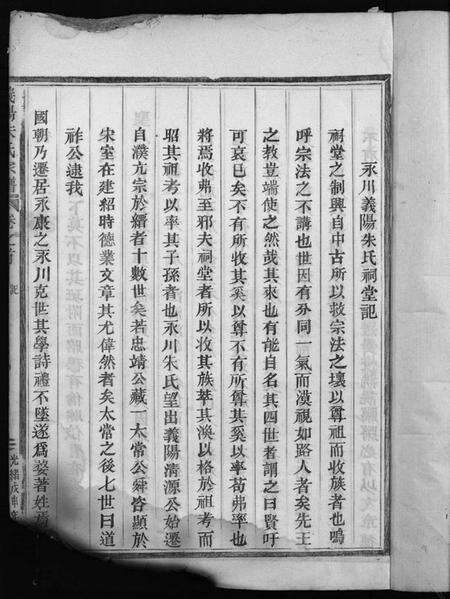 永川義陽朱氏祠堂記
祠堂之制興自中古所以救宗法之壞以尊祖而收族者也嗚
呼宗法之不講也世因有分同一氣而漠視如路人者矣先王
之教豈端使之然哉其來也有能自名其四世者謂之曰賢吁
可哀已矣不有所收其奚以尊不有所尊其奚以率苟弗率也
將焉收弗至邪夫祠堂者所以收其族萃其渙以格於祖考而
昭其祖考以率其子孫者也永川朱氏望出義陽清源公始遷
自濮亢宗於縉者十數世矣若忠靖公藏一太常公舜咨顯於
宋室在建紹時德業文章其尤偉然者矣太常之後七世曰道
祚公逮我
國朝乃遷居永康之永川克世其學詩禮不墜遂為婺著姓
朱氏宗譜
卷之首
記
二
光緒戊申